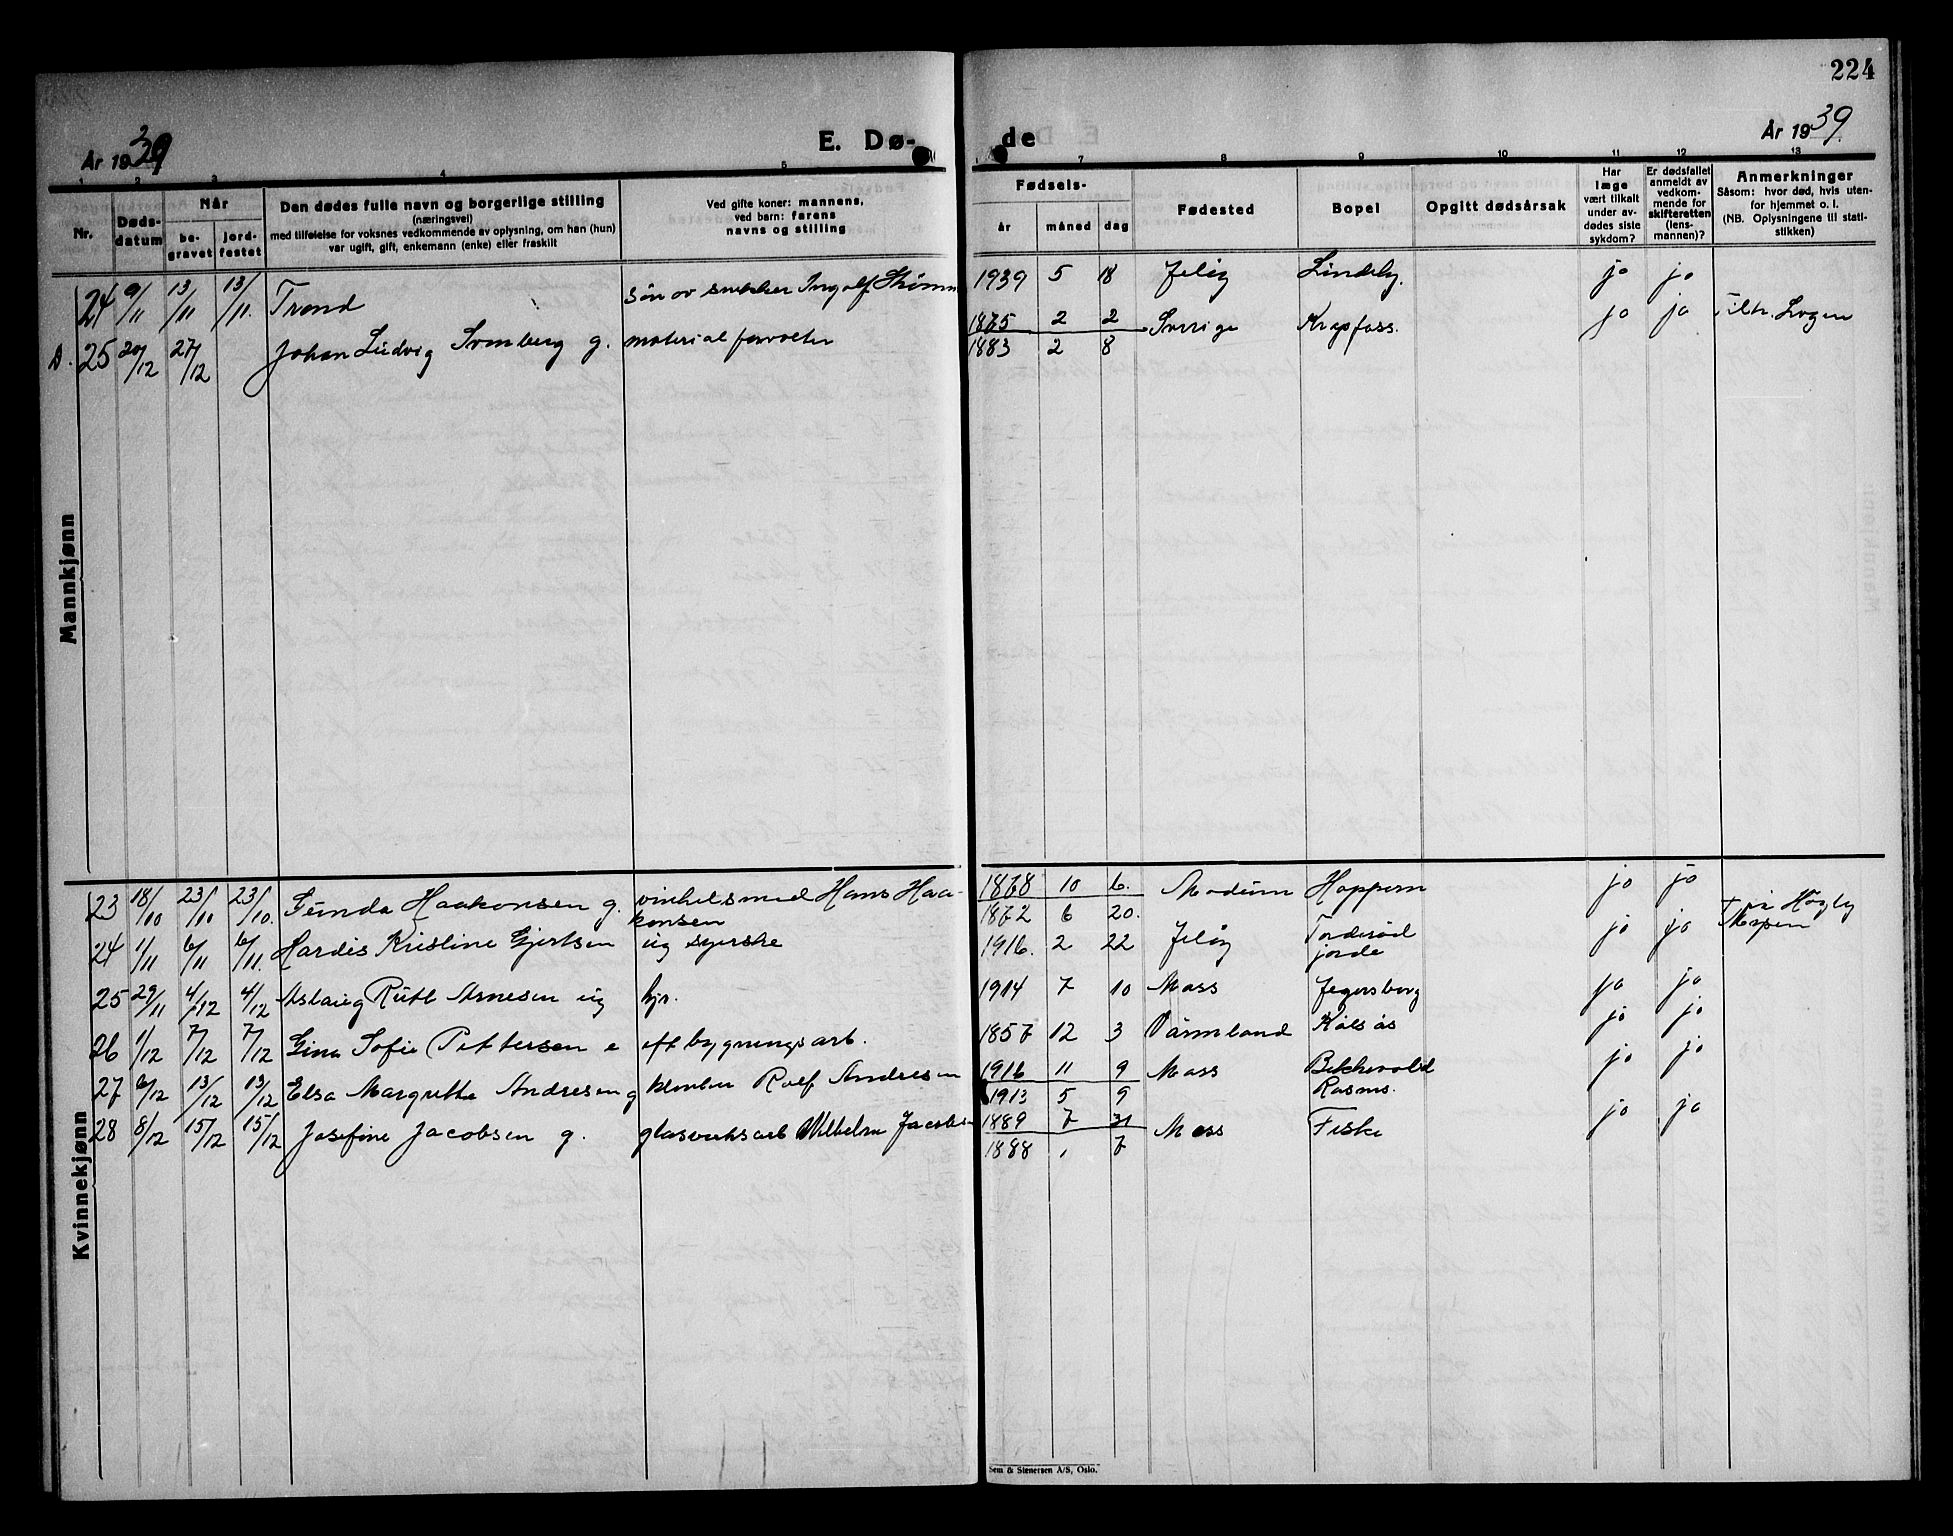 224
År 1939
E. Dø-
de
År 1939.
1 2 3 4 5 7 8 9 10 11 12 13
Nr.
Døds-
datum
Når
be-
gravet
jord-
festet
Den dødes fulle navn og borgerlige stilling
(næringsvei)
med tilføielse for voksnes vedkommende av oplysning, om han (hun)
var ugift, gift, enkemann (enke) eller fraskilt
Ved gifte koner: mannens,
ved barn: farens
navns og stilling
Fødsels-
år
måned
dag
Fødested
Bopel
Opgitt dødsårsak
Har
læge
vært tilkalt
under av-
dødes siste
sykdom?
Er dødsfallet
anmeldt av
vedkom-
mende for
skifteretten
(lens-
mannen)?
Anmerkninger
Såsom: hvor død, hvis uten-
for hjemmet o. l.
(NB. Oplysningene til stati-
stikken)
Mannkjønn
24 9/11 13/11 13/11. Trond søn av snekker Ingolf 1939 5 18 Jeløy Lindeby. jo jo
D. 25 20/12 27/12 Johan Ludvig Svenberg g. material forvalter 1875 2 2 Sverige Krapfoss. jo jo
1883 2 8
Kvinnekjønn
23 18/10 23/10 23/10. Haakonsen g. vinkelsmed Hans Haa- 1868 10 6. Modum Hoppern jo jo
konsen 1872 6 20.
24 1/11 6/11 6/11. Hardis Kristine Gjertsen ug syerske 1916. 2 22 Jeløy jorde jo jo
25 29/11 4/12 4/12 Aslaug Ruth Arnesen ug hjr. 1914 7 10 Moss Jegersborg jo jo
26 1/12 7/12 7/12 Gina Sofie Pettersen e eft bygningsarb. 1857 12 3 Värmland Kolsås jo jo
27 6/12 13/12 13/12 Elsa Margrethe Andresen g klenker Rolf Andresen 1916 11 9 Moss Bekkevold jo jo
1913 5 9 Rosnes.
28 8/12 15/12 15/12 Josefine Jacobsen g. glasverksarb Wilhelm Jacobsen 1889 7 31 Moss Fiske jo jo
1888 1 7
Sem & Stenersen A/S, Oslo.